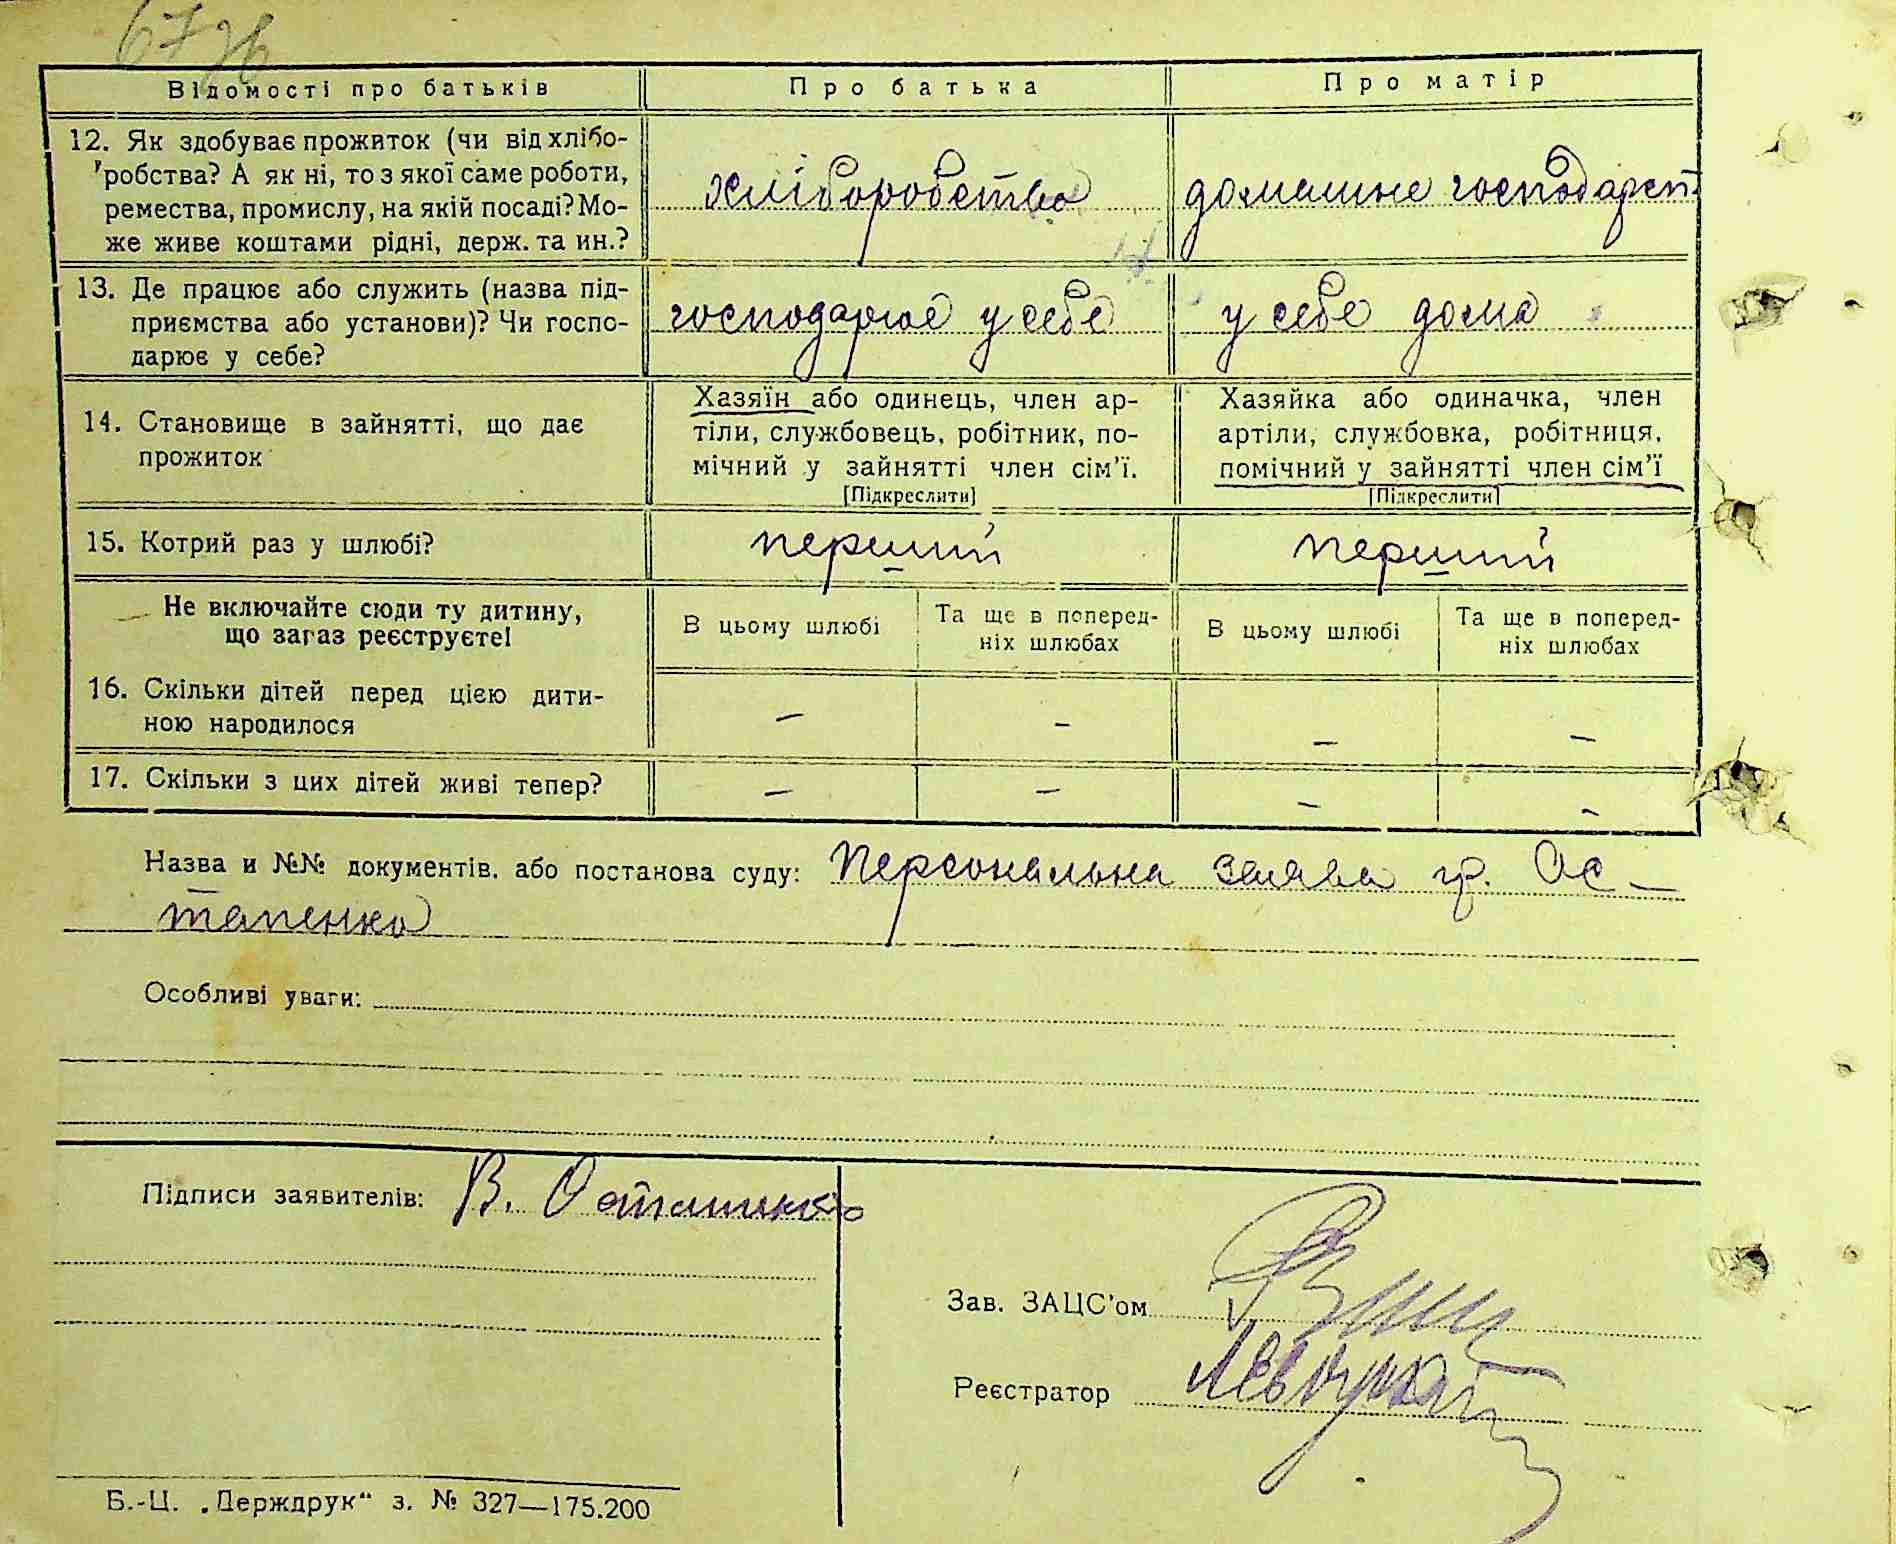 Відомості про батьків Про батька Про матір
12. Як здобуває прожиток (чи від хлібо-
робства? А як ні, то з якої саме роботи,
ремества, промислу, на якій посаді? Мо-
же живе коштами рідні, держ. та ин.?
хліборобство домашне господарст.
13. Де працює або служить (назва під-
приємства або установи)? Чи госпо-
дарює у себе?
господарює у себе у себе дома
14. Становище в зайнятті, що дає
прожиток
Хазяїн або одинець, член ар-
тіли, службовець, робітник, по-
мічний у зайнятті член сім’ї.
[Підкреслити]
Хазяйка або одиначка, член
артіли, службовка, робітниця,
помічний у зайнятті член сім’ї
[Підкреслити]
15. Котрий раз у шлюбі? перший перший
Не включайте сюди ту дитину,
що зараз реєструєте!
В цьому шлюбі
Та ще в поперед-
ніх шлюбах
В цьому шлюбі
Та ще в поперед-
ніх шлюбах
16. Скільки дітей перед цією дити-
ною народилося
– – – –
17. Скільки з цих дітей живі тепер? – – – –
Назва и №№ документів, або постанова суду: Персональна заява гр. Ос-
тапенко
Особливі уваги:
Підписи заявителів: В. Остапенко
Зав. ЗАЦС’ом
Реєстратор
Б.-Ц. „Держдрук“ з. № 327—175.200